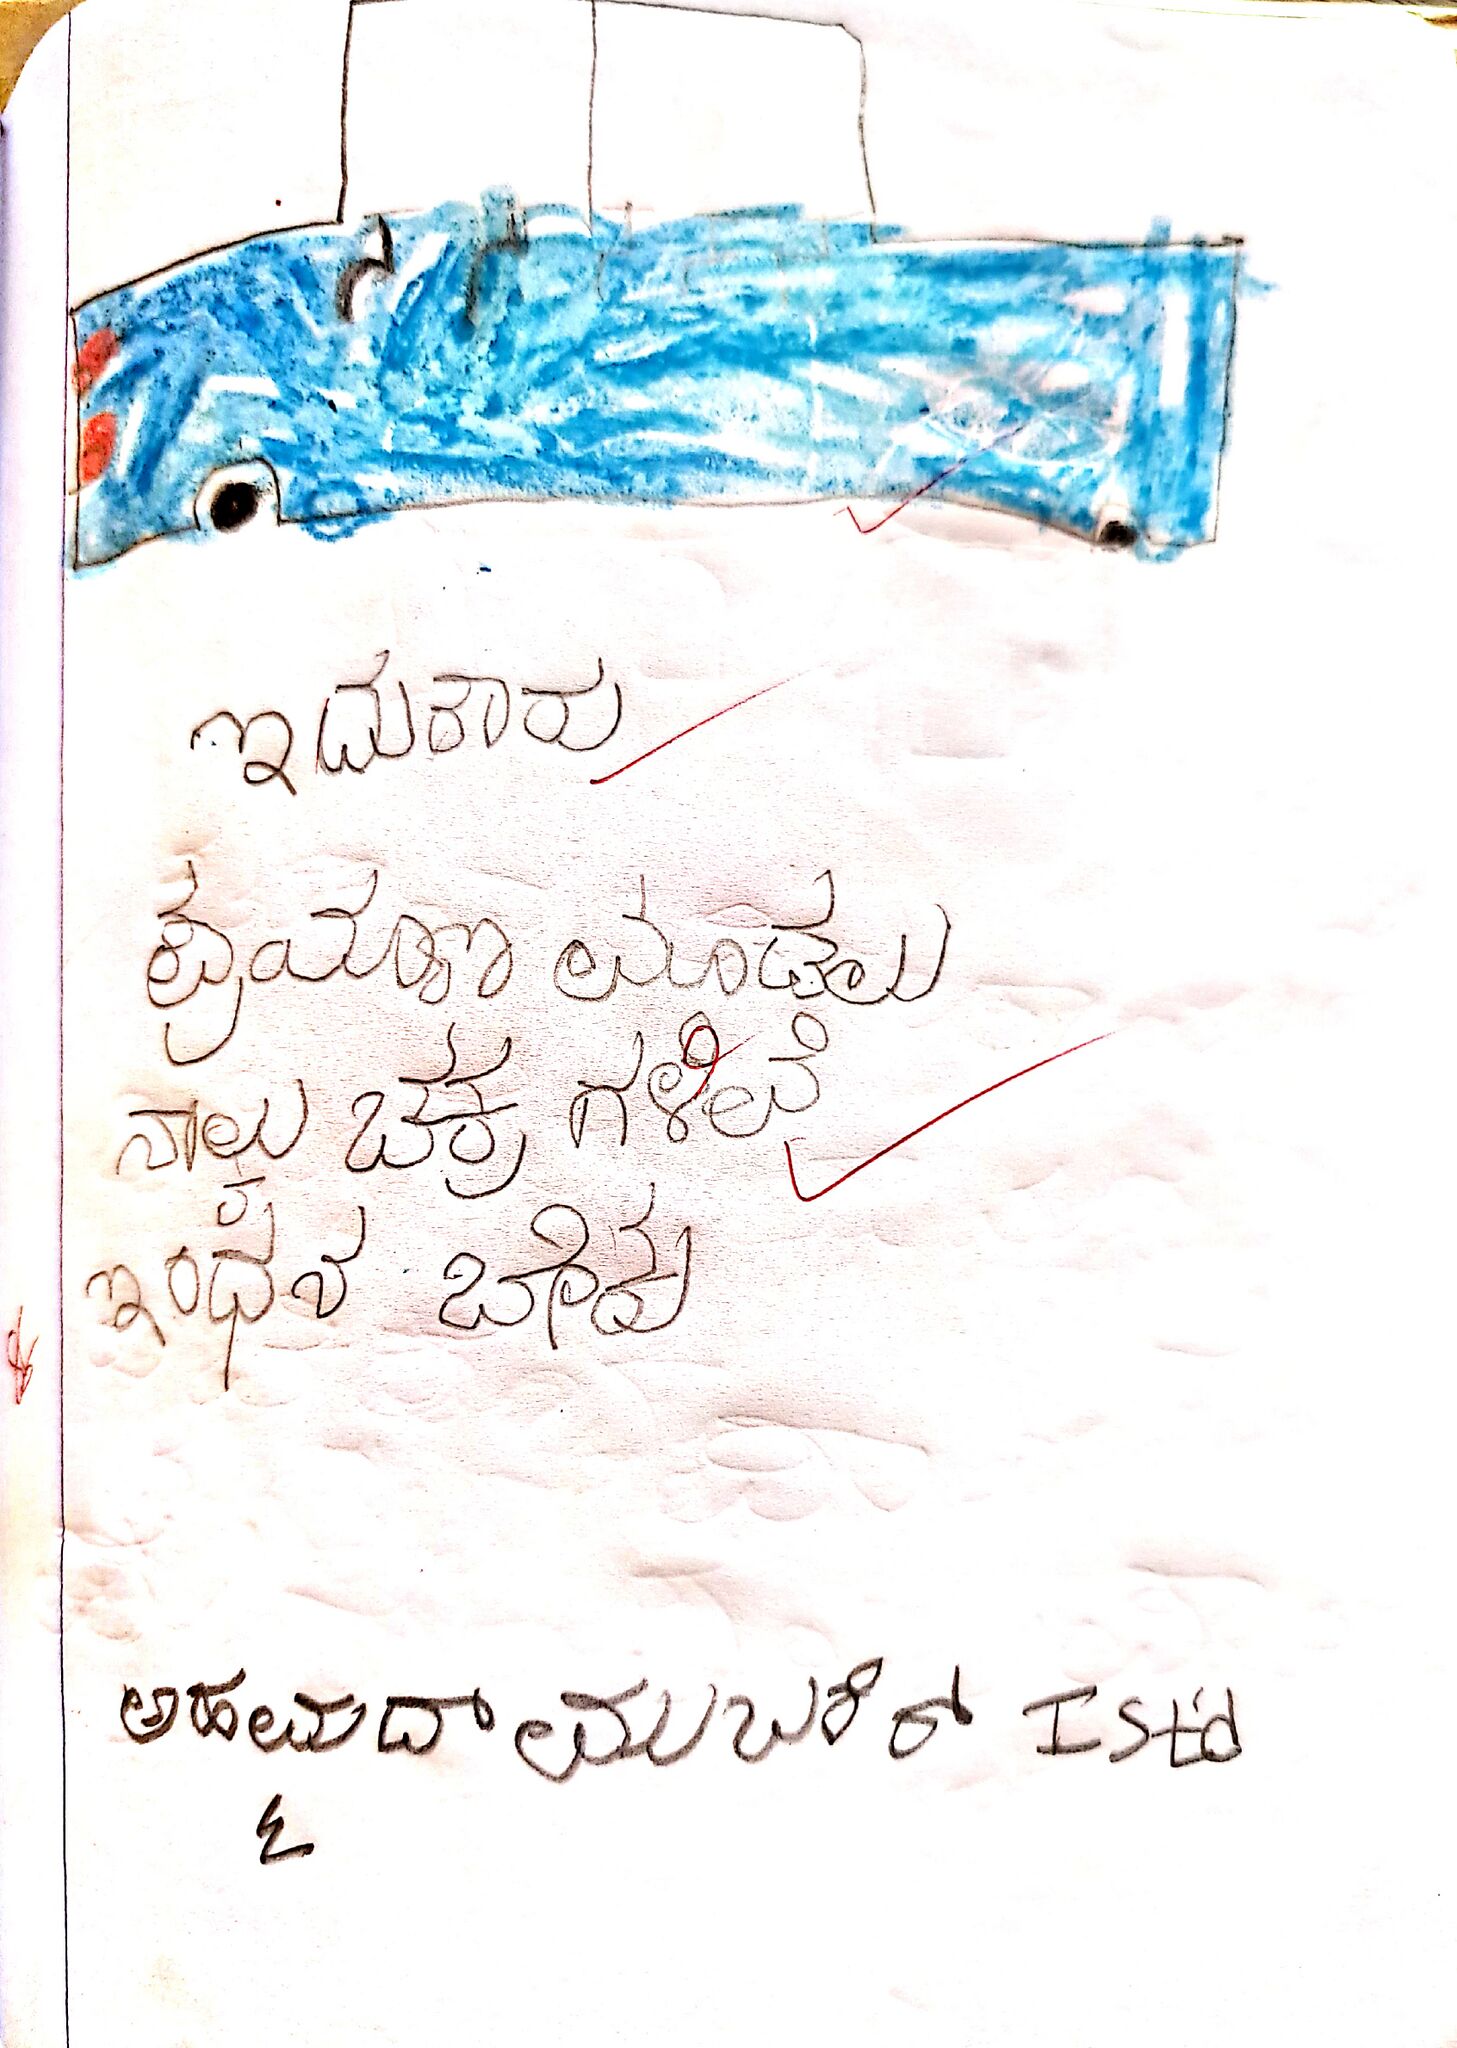 ಇದು ಕಾರು
ಪ್ರಯಾಣ ಮಾಡಲು
ನಾಲ್ಕು ಚಕ್ರ ಗಳಿವೆ
ಇಂಧನ ಬೇಕು
ಅಹಮ್ಮದ್ ಮುಬಶಿರ್ Istd